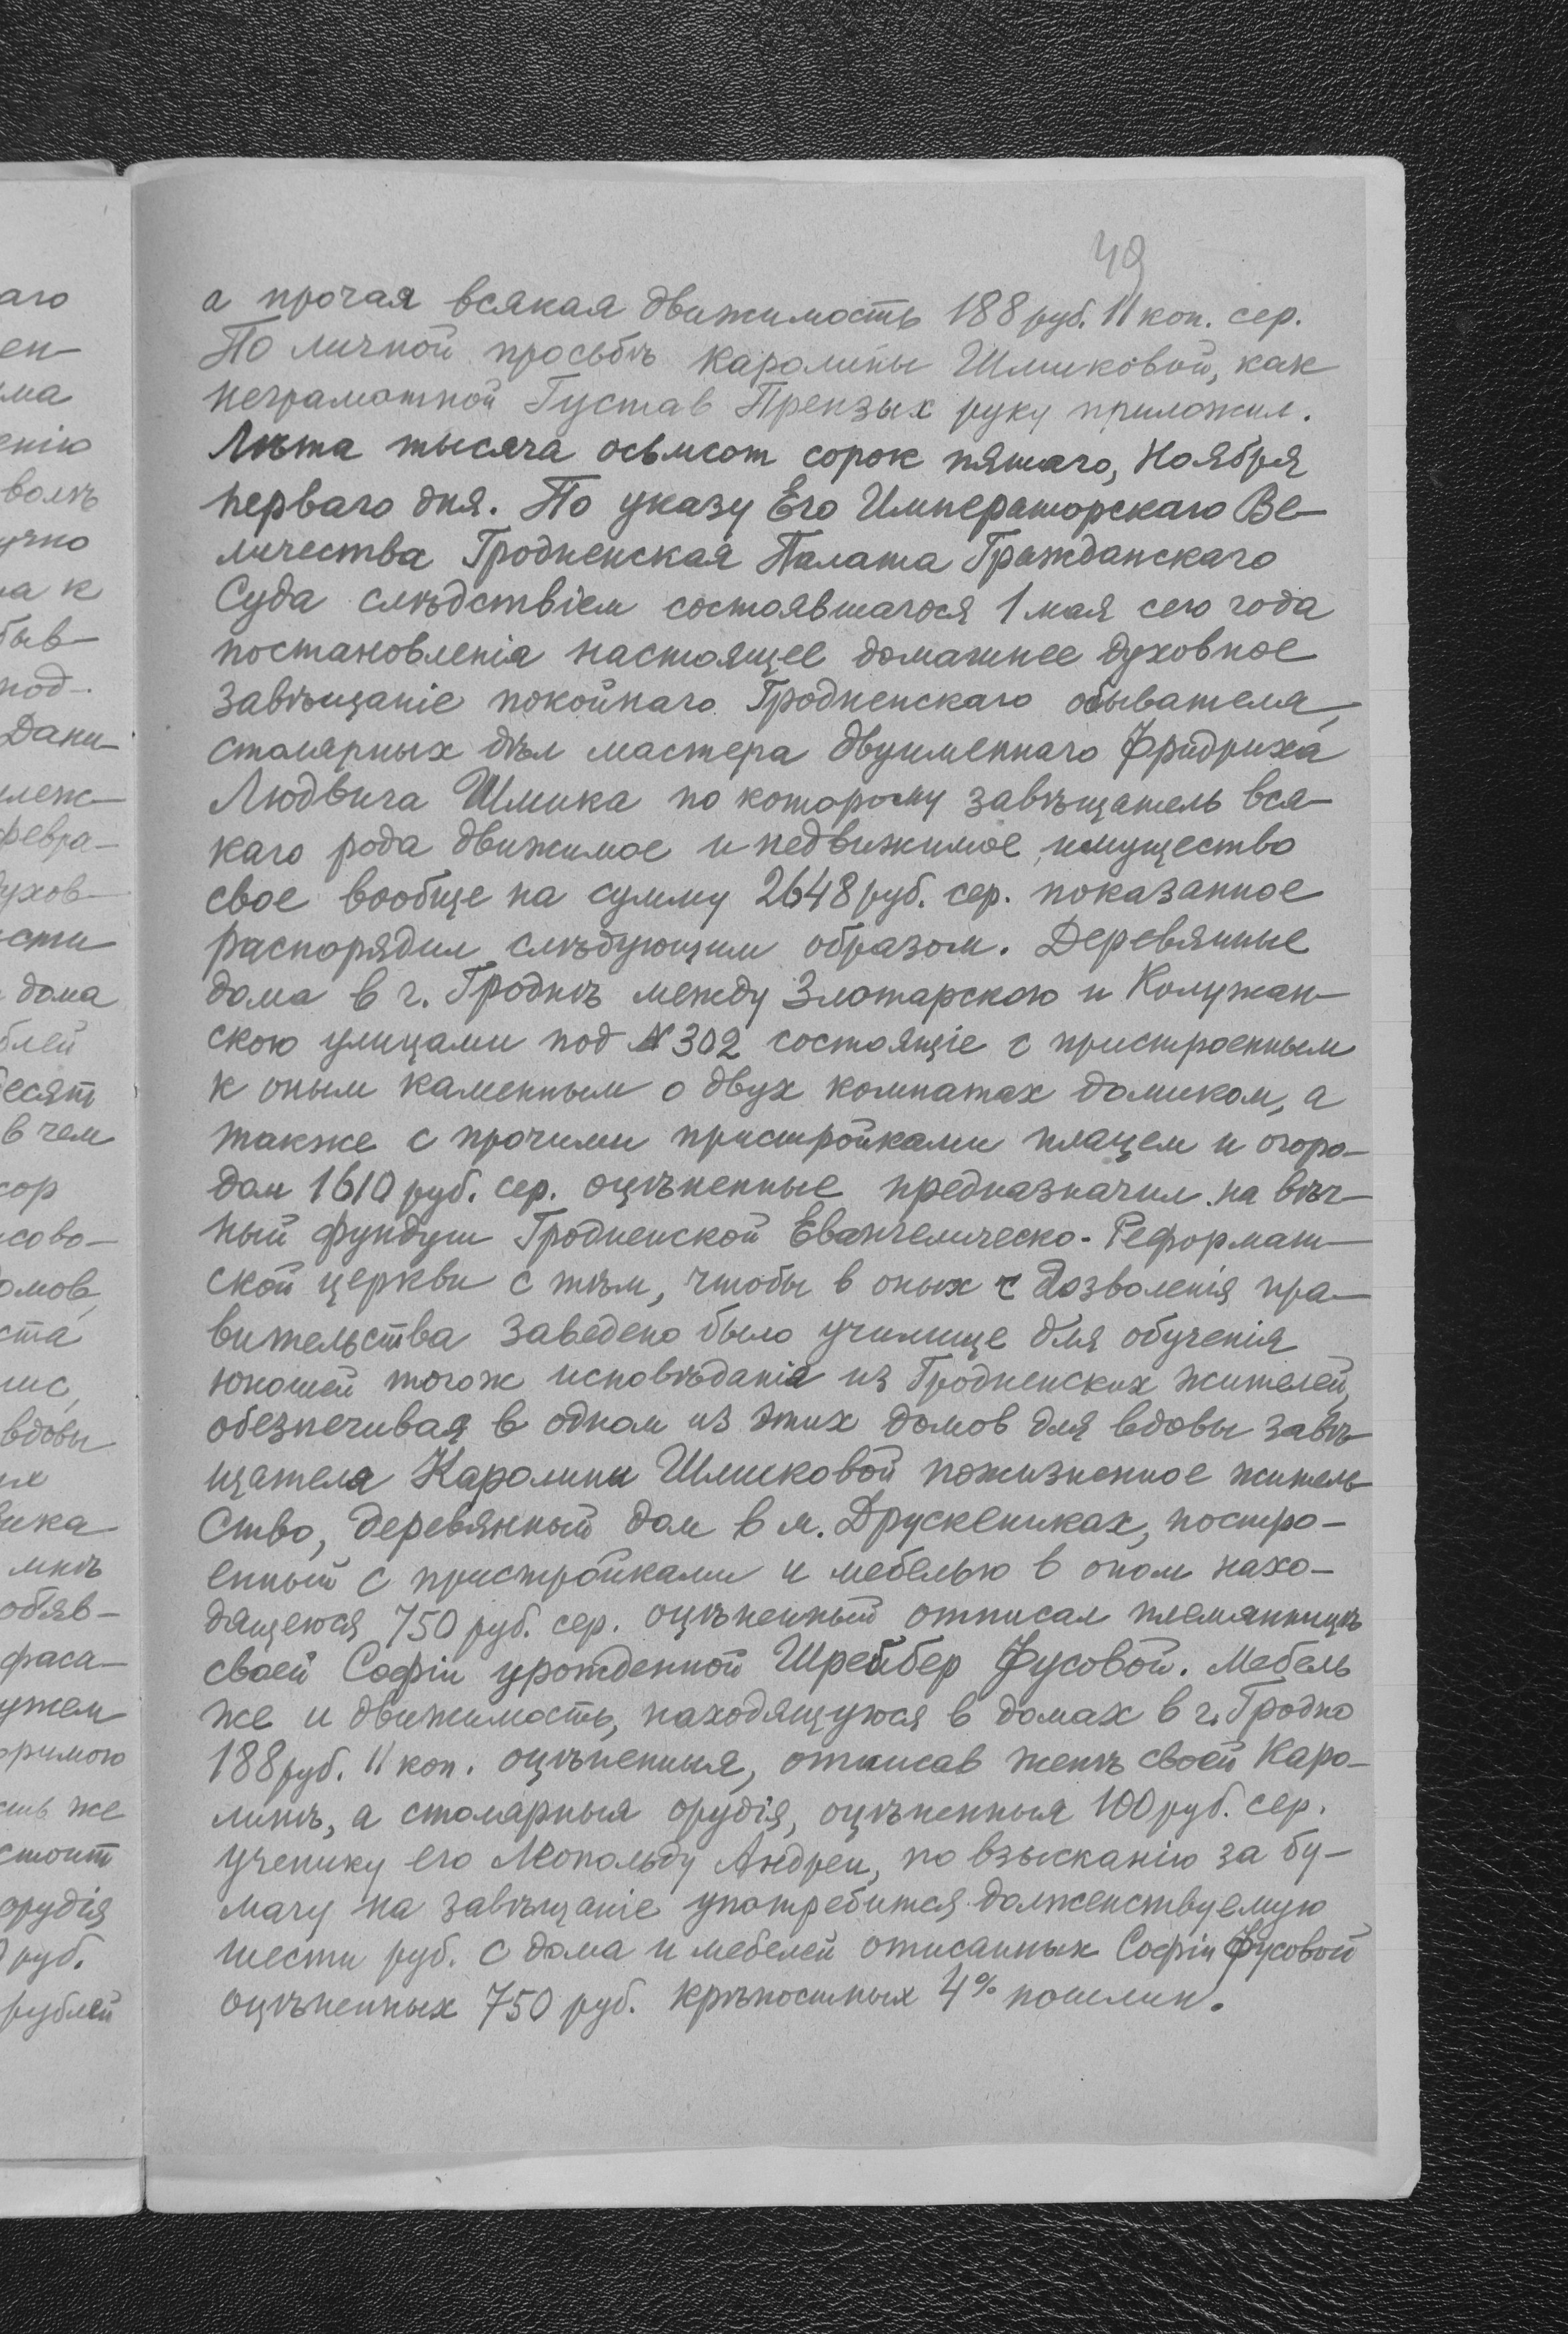 49
а прочая всякая движимость 188 руб. 11 коп. сер.
По личной просьбѣ Каролины Шмиковой, как
неграмотной Густав Прензых руку приложил.
Лѣта тысяча осьмсот сорок пятаго, Ноября
перваго дня. По указу Его Императорскаго Ве-
личества Гродненская Палата Гражданскаго
Суда слѣдствіем состоявшагося 1 мая сего года
постановленія настоящее домашнее духовное
завѣщаніе покойнаго Гродненскаго обывателя,
столярных дѣл мастера двуименнаго Фридриха
Людвига Шмика по которому завѣщатель вся-
каго рода движимое и недвижимое имущество
свое вообще на сумму 2648 руб. сер. показанное
распорядил слѣдующим образом. Деревянные
дома в г. Гроднѣ между Злотарскою и Колужан-
скою улицами под № 302 состоящіе с пристроенным
к оным каменным о двух комнатах домиком, а
также с прочими пристройками плацем и огоро-
дом 1610 руб. сер. оцѣненные предназначил на вѣч-
ный фундуш Гродненской Евангелическо-Реформат-
ской церкви с тѣм, чтобы в оных с дозволенія пра-
вительства заведено было училище для обученія
юношей тогож исповѣданія из Гродненских жителей,
обезпечивая в одном из этих домов для вдовы завѣ-
щателя Каролины Шмиковой пожизненное житель-
ство, деревянный дом в м. Друскениках, постро-
енный с пристройками и мебелью в оном нахо-
дящеюся 750 руб. сер. оцѣненный отписал племянницѣ
своей Софіи урожденной Шрейбер Фусовой. Мебель
же и движимость, находящуюся в домах в г. Гродно
188 руб. 11 коп. оцѣненныя, отписав женѣ своей Каро-
линѣ, а столарныя орудія, оцѣненныя 100 руб. сер.
ученику его Леопольду Андреи, по взысканію за бу-
магу на завѣщаніе употребится долженствуемую
шести руб. с дома и мебелей описанных Софіи Фусовой
оцѣненных 750 руб. крѣпостных 4% пошлин.